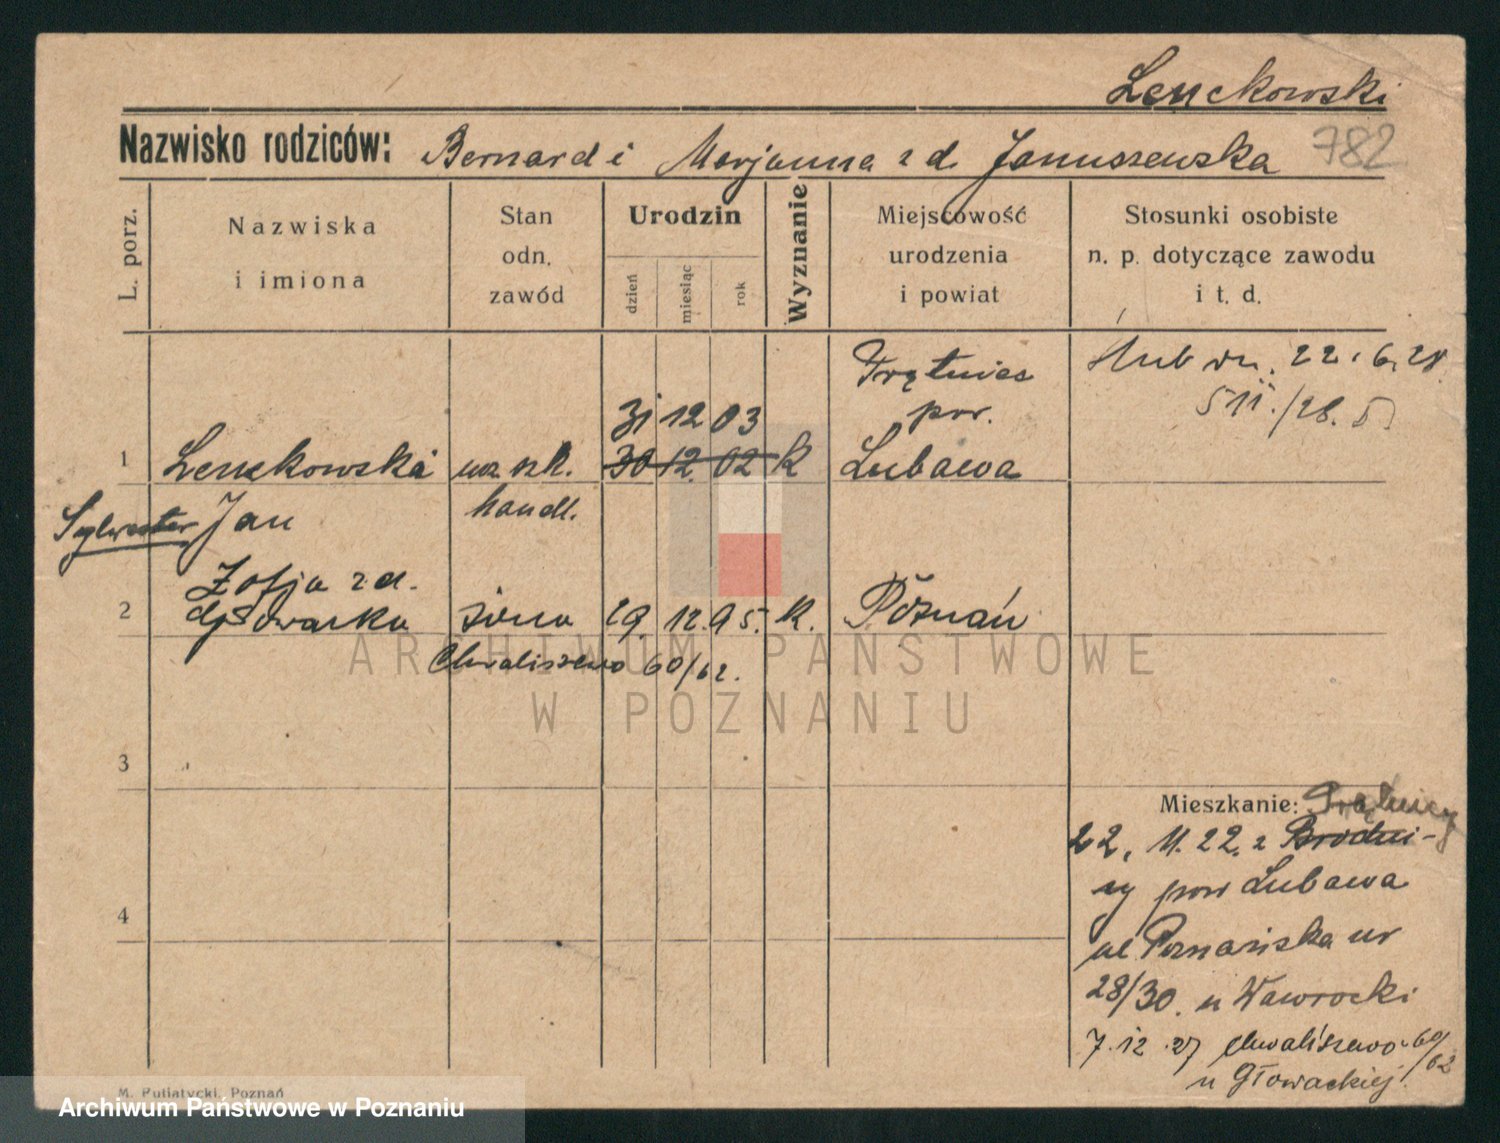 Lenckowski
Nazwisko rodziców: Bernard i Marjanna z d. Januszewska
782
L. porz.
Nazwiska
i imiona
Stan
odn.
zawód
Urodzin
dzień
miesiąc
rok
Wyznanie
Miejscowość
urodzenia
i powiat
Stosunki osobiste
n. p. dotyczące zawodu
i t. d.
22.6.28
31 12 03
pow.
1 Lenckowski 30 12. 02 k Lubawa
handl.
Sylwester Jan
2 Zofja z d.
żona 29. 12. 95. k. Poznań
Chwaliszewo 60/62.
ARCHIWUM PAŃSTWOWE
W POZNANIU
3
4
Mieszkanie:
22. 11. 22. z
pow Lubawa
ul Poznańska nr
28/30. u Wawrocki
7.12.27 Chwaliszewo 60/62
u Głowackiej.
M. Putiatycki, Poznań
Archiwum Państwowe w Poznaniu